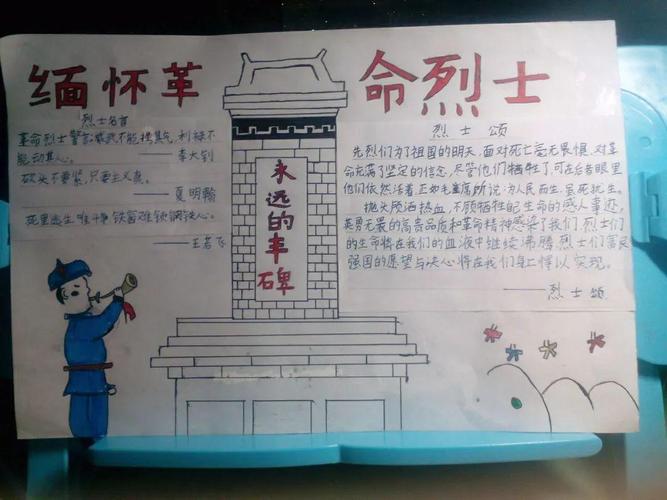 缅怀革命烈士
烈士名言
革命烈士警言:威武不能挫其气,利禄不
能动其心。
——李大钊
砍头不要紧,只要主义真。
——夏明翰
死里逃生唯斗争,铁窗难锁钢铁心。
——王若飞
永远的丰碑
烈士颂
先烈们为了祖国的明天,面对死亡毫无畏惧,对革
命充满了坚定的信念,尽管他们牺牲了,可在后者眼里
他们依然活着,正如毛主席所说:为人民而生,虽死犹生。
抛头颅洒热血,不顾牺牲自己生命的感人事迹,
英勇无畏的高贵品质和革命精神感染了我们,烈士们
的生命将在我们的血液中继续沸腾,烈士们富民
强国的愿望与决心将在我们身上得以实现。
——烈士颂